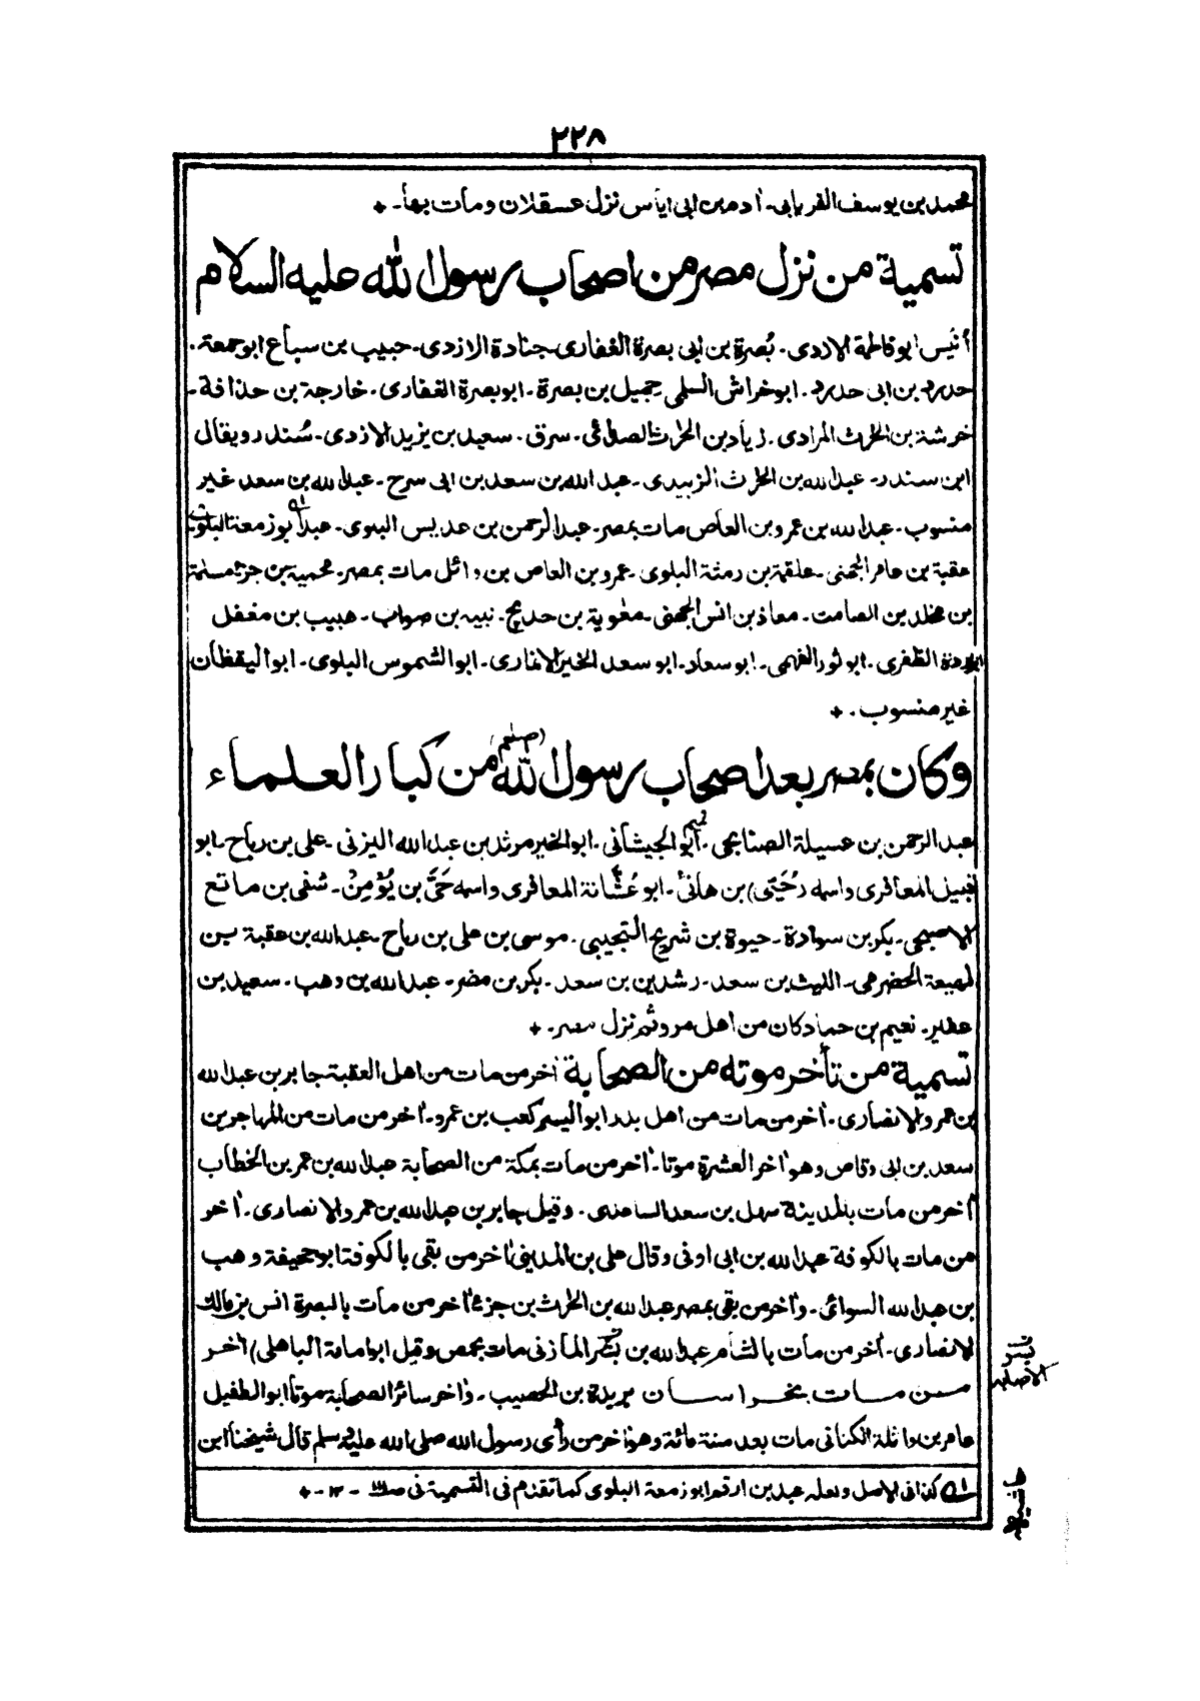 ٢٢٨
محمد بن يوسف الفريابى۔ اٰدم بن ابى اياس نزل عسقلان ومات بها۔
تسمية من نزل مصر من اصحاب رسول الله عليه السلام
أنيس ابو فاطمة الازدى۔ بُصرة بن ابى بصرة الغفارى۔ جنادة الازدى۔ حبيب بن سباع ابو جمعة۔
حدرد بن ابى حدرد۔ ابو خراش السلمى جميل بن بصرة۔ ابو بصرة الغفارى۔ خارجة بن حذافة۔
خرشة بن الحٰرث المرادى۔ زياد بن الحٰرث الصدائى۔ سرق۔ سعيد بن يزيد الازدى۔ سُندر ويقال
ابن سندر۔ عبد الله بن الحٰرث الزبيدى۔ عبد الله بن سعد بن ابى سرح۔ عبد الله بن سعد غير
منسوب۔ عبد الله بن عمرو بن العاص مات بمصر۔ عبد الرحمن بن عديس البلوى۔ عبد ابو زمعة البلوى
عقبة بن عامر الجهنى۔ علقمة بن رمثة البلوى۔ عمرو بن العاص بن وائل مات بمصر۔ محمية بن جزء مسلمة
بن مخلد بن الصامت۔ معاذ بن انس الجهنى۔ معٰوية بن حديج۔ نبيه بن صواب۔ هبيب بن مغفل
ابو بردة الظفرى۔ ابو ثور الفهمى۔ ابو سعاد۔ ابو سعد الخير الانمارى۔ ابو الشموس البلوى۔ ابو اليقظان
غير منسوب۔
وكان بمصر بعد اصحاب رسول الله (صلعم) من كبار العلماء
عبد الرحمن بن عسيلة الصنابحى۔ ابو تميم الجيشانى۔ ابو الخير مرثد بن عبد الله اليزنى۔ على بن رباح۔ ابو
قبيل المعافرى واسمه (حُيَىّ) بن هانئ۔ ابو عُشّانة المعافرى واسمه حَىّ بن يُؤْمِنْ۔ شفى بن ماتع
الاصبحى۔ بكر بن سوادة۔ حيوة بن شريح التجيبى۔ موسى بن على بن رباح۔ عبد الله بن عقبة بن
لهيعة الحضرمى۔ الليث بن سعد۔ رشدين بن سعد۔ بكر بن مضر۔ عبد الله بن وهب۔ سعيد بن
عفير۔ نعيم بن حماد كان من اهل مرو ثم نزل مصر۔
تسمية من تأخر موته من الصحابة اٰخر من مات من اهل العقبة جابر بن عبد الله
بن عمرو الانصارى۔ اٰخر من مات من اهل بدر ابو اليسر كعب بن عمرو۔ اٰخر من مات من المهاجرين
سعد بن ابى وقاص وهو اٰخر العشرة موتا۔ اٰخر من مات بمكة من الصحابة عبد الله بن عمر بن الخطاب
اٰخر من مات بالمدينة سهل بن سعد الساعدى۔ وقيل جابر بن عبد الله بن عمرو الانصارى۔ اٰخر
من مات بالكوفة عبد الله بن ابى اوفى وقال على بن المدينى اٰخر من بقى بالكوفة ابو جحيفة وهب
بن عبد الله السوائى۔ واٰخر من بقى بمصر عبد الله بن الحٰرث بن جزء اٰخر من مات بالبصرة انس بن مالك
الانصارى۔ اٰخر من مات بالشام عبد الله بن بُسر المازنى مات بحمص وقيل ابو امامة الباهلى) اٰخر
من مات بخراسان بريدة بن الحصيب۔ واٰخر سائر الصحابة موتا ابو الطفيل
عامر بن واثلة الكنانى مات بعد سنة مائة وهو اٰخر من رأى رسول الله صلى الله عليه وسلم قال شيخنا ابن
كذا فى الاصل ولعله عبد بن ارقم ابو زمعة البلوى كما تقدم فى التسمية فى